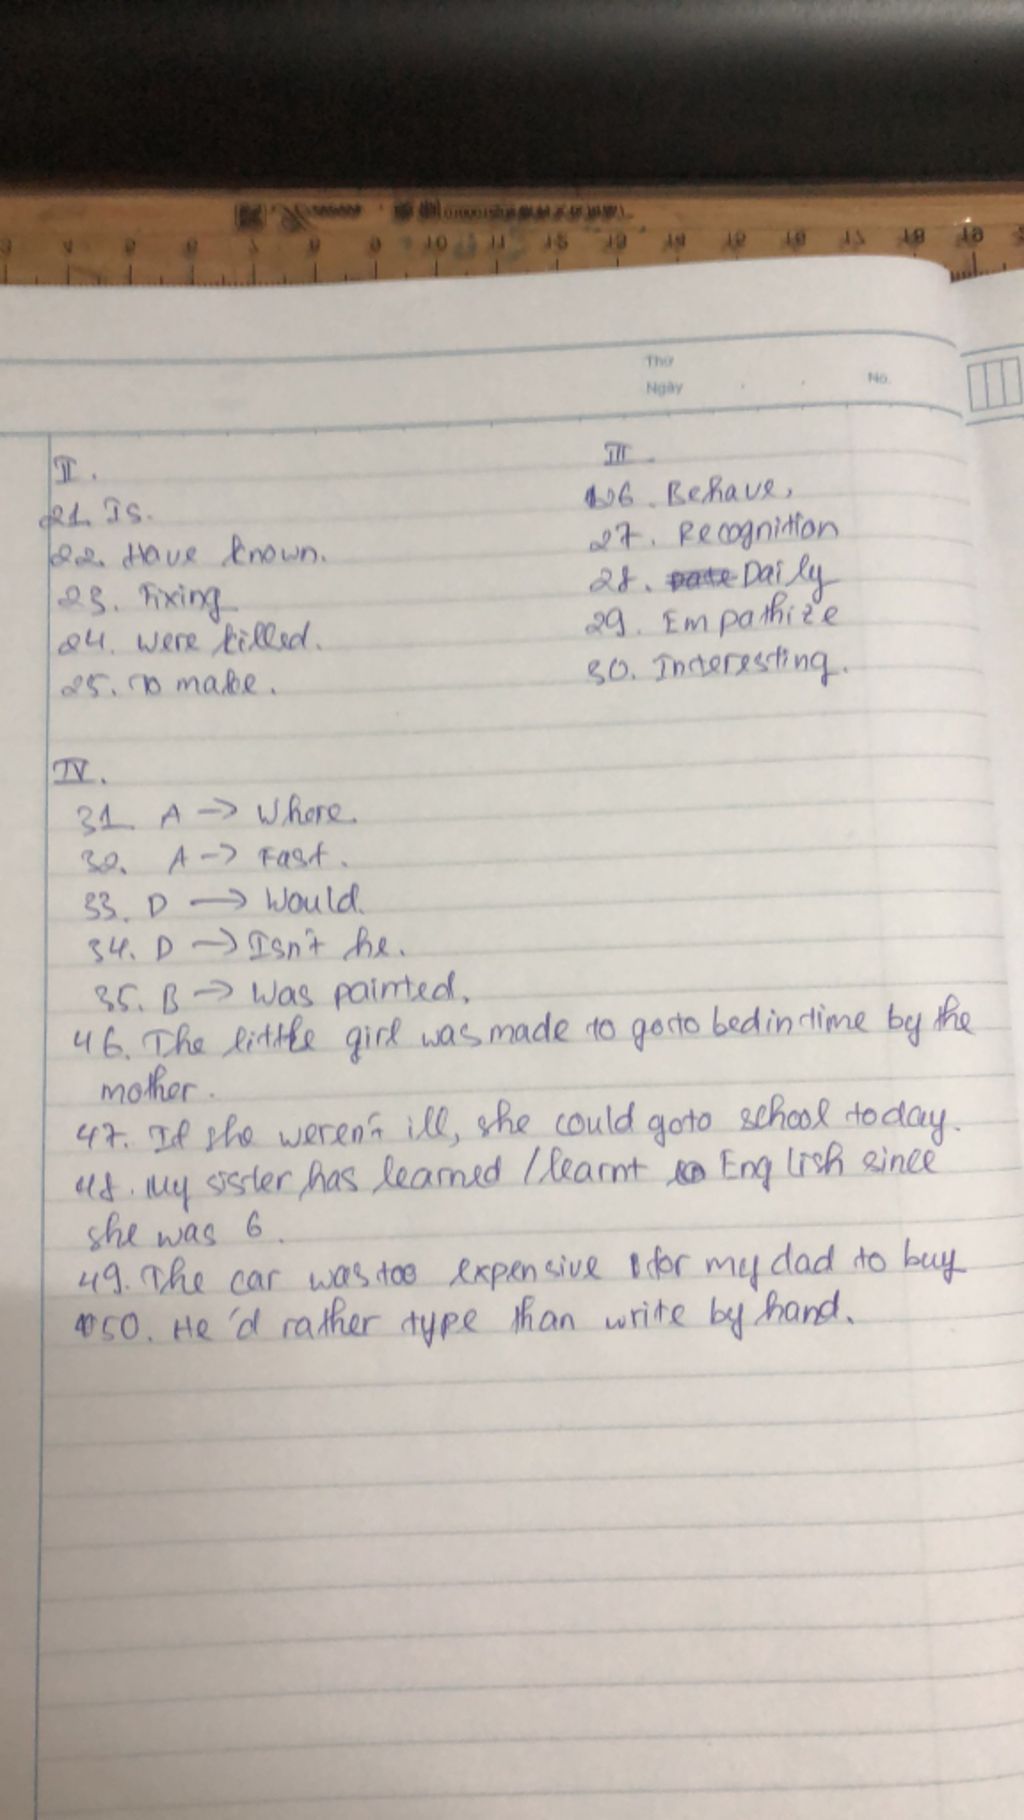 3 4 5 6 7 8 9 10 11 12 13 14 15 16 17 18 19
Thứ
Ngày
No.
II.
21. Is.
22. Have known.
23. Fixing
24. Were killed.
25. To make.
III
26. Behave,
27. Recognition
28. Daily
29. Empathize
30. Interesting.
IV.
31. A -> Where.
32. A -> Fast.
33. D -> Would.
34. D -> Isn't he.
35. B -> Was painted.
46. The little girl was made to go to bed in time by the
mother.
47. If she weren't ill, she could go to school today.
48. My sister has learned / learnt English since
she was 6.
49. The car was too expensive for my dad to buy
50. He'd rather type than write by hand.